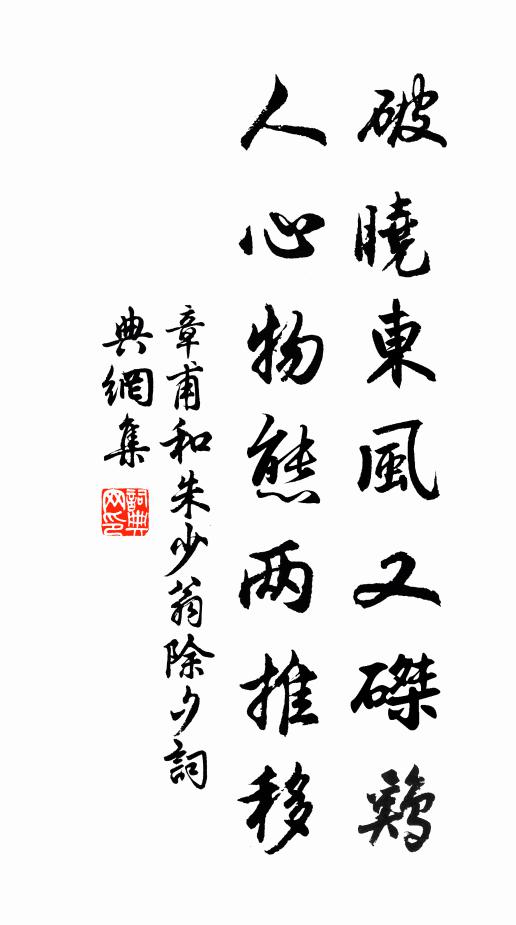 破曉東風又磔鷄
人心物態两推移
章甫和朱少翁除夕詞
典網集
詞典网印